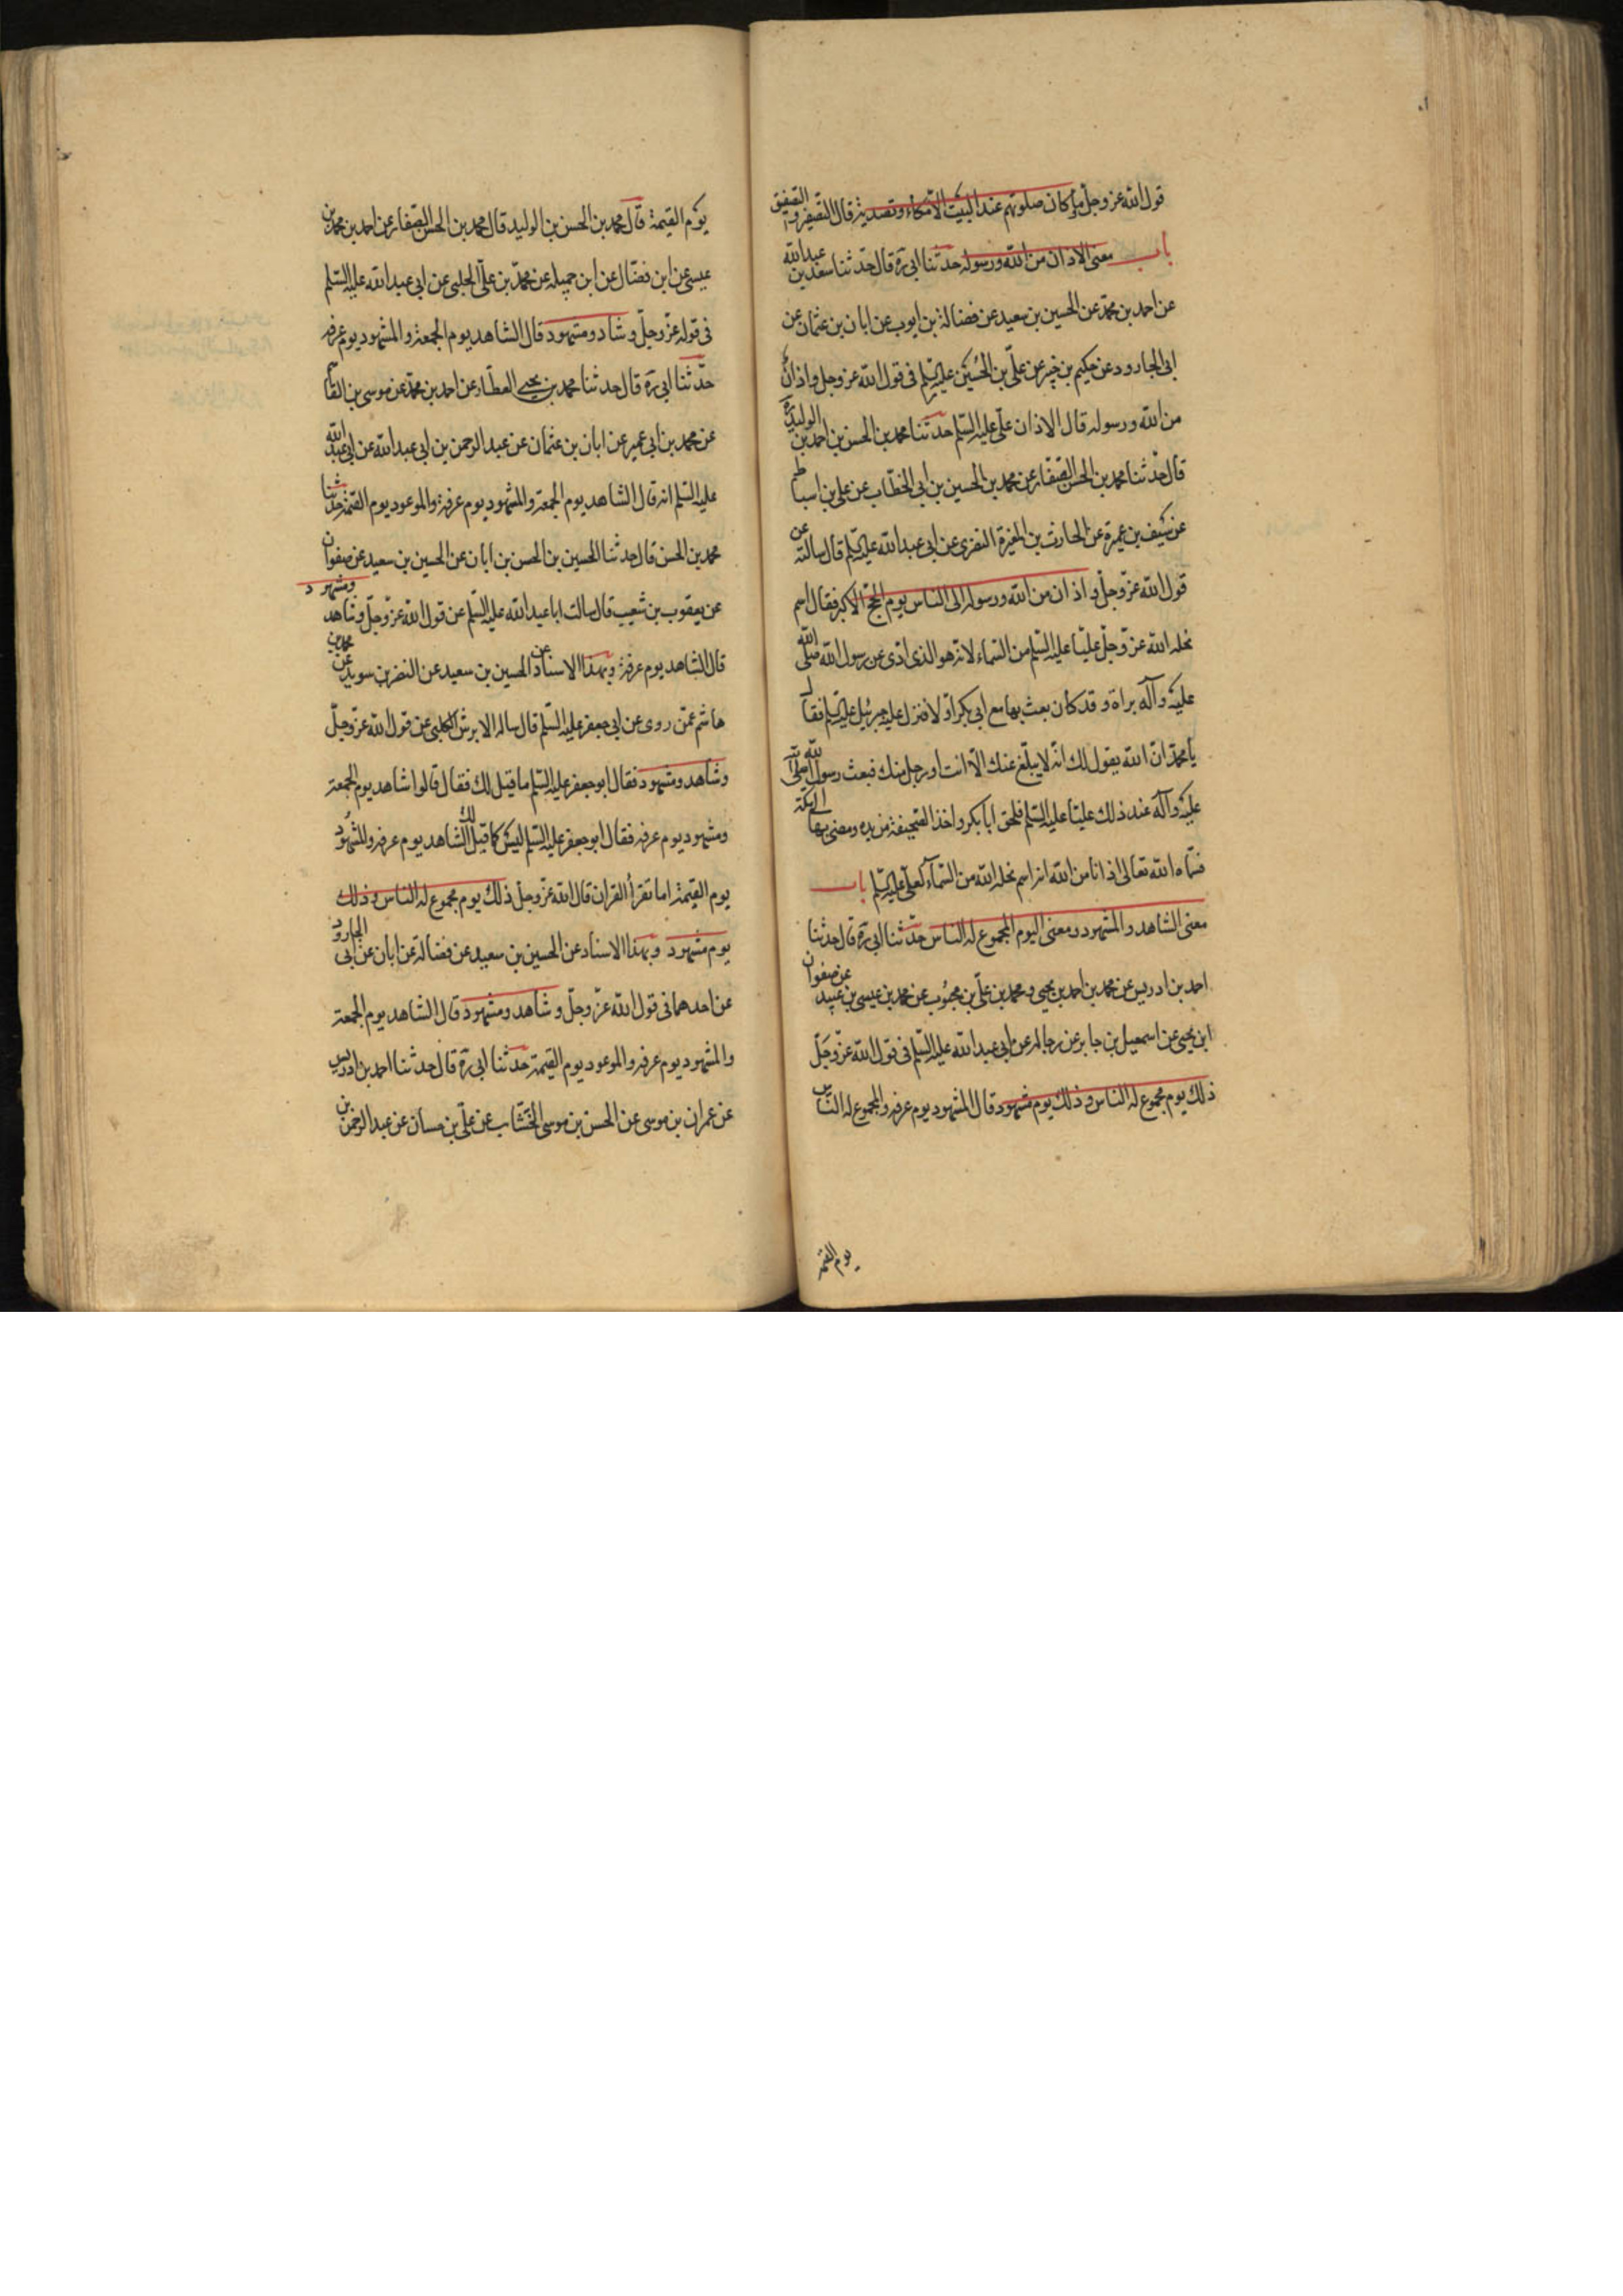 قول الله عز وجل وما كان صلوتهم عند البيت الا مكاء وتصدية قال التصفير والتصفيق
باب معنى الاذان من الله ورسوله حدثنا ابى ره قال حدثنا سعد بن عبد الله
عن احمد بن محمد عن الحسين بن سعيد عن فضالة بن ايوب عن ابان بن عثمان عن
ابى الجارود عن حكيم بن جبير عن على بن الحسين عليه السلم فى قول الله عز وجل واذان
من الله ورسوله قال الاذان على عليه السلم حدثنا محمد بن الحسن بن احمد بن الوليد ره
قال حدثنا محمد بن الحسن الصفار عن محمد بن الحسين بن ابى الخطاب عن على بن اسباط
عن سيف بن عميرة عن الحارث بن المغيرة النضرى عن ابى عبد الله عليه السلم قال سالته عن
قول الله عز وجل واذان من الله ورسوله الى الناس يوم الحج الاكبر فقال اسم
نحله الله عز وجل عليا عليه السلم من السماء لانه هو الذى ادى عن رسول الله صلى الله
عليه وآله براة وقد كان بعث بها مع ابى بكر اولا فنزل عليه جبرئيل عليه السلم فقال
يا محمد ان الله يقول لك انه لا يبلغ عنك الا انت او رجل منك فبعث رسول الله صلى الله
عليه وآله عند ذلك عليا عليه السلم فلحق ابا بكر واخذ الصحيفة من يده ومضى بها الى مكة
فسماه الله تعالى اذانا من الله انه اسم نحله الله من السماء لعلى عليه السلم باب
معنى الشاهد والمشهود ومعنى اليوم المجموع له الناس حدثنا ابى ره قال حدثنا
احمد بن ادريس عن محمد بن احمد بن يحيى ومحمد بن على بن محبوب عن محمد بن عيسى بن عبيد عن صفوان
ابن يحيى عن اسمعيل بن جابر عن رجاله عن ابى عبد الله عليه السلم فى قول الله عز وجل
ذلك يوم مجموع له الناس وذلك يوم مشهود قال المشهود يوم عرفه والمجموع له الناس
يوم القيمة
يوم القيمة قال محمد بن الحسن بن الوليد قال محمد بن الحسن الصفار عن احمد بن محمد بن
عيسى عن ابن فضال عن ابن جميله عن محمد بن على الحلبى عن ابى عبد الله عليه السلم
فى قوله عز وجل وشاد ومشهود قال الشاهد يوم الجمعة والمشهود يوم عرفه
حدثنا ابى ره قال حدثنا محمد بن يحيى العطار عن احمد بن محمد عن موسى بن القاسم
عن محمد بن ابى عمير عن ابان بن عثمان عن عبد الرحمن بن ابى عبد الله عن ابى عبد الله
عليه السلم انه قال الشاهد يوم الجمعة والمشهود يوم عرفة والموعود يوم القيمة حدثنا
محمد بن الحسن قال حدثنا الحسين بن الحسن بن ابان عن الحسين بن سعيد عن صفوان
عن يعقوب بن شعيب قال سالت ابا عبد الله عليه السلم عن قول الله عز وجل وشاهد ومشهود
قال الشاهد يوم عرفة وبهذا الاسناد عن الحسين بن سعيد عن النضر بن سويد عن محمد بن
هاشم عمن روى عن ابى جعفر عليه السلم قال ساله الابرش الكلبى عن قول الله عز وجل
وشاهد ومشهود فقال ابو جعفر عليه السلم ما قيل لك فقال قالوا شاهد يوم الجمعة
ومشهود يوم عرفه فقال ابو جعفر عليه السلم ليس كما قيل لك الشاهد يوم عرفه والمشهود
يوم القيمة اما تقرأ القران قال الله عز وجل ذلك يوم مجموع له الناس وذلك
يوم مشهود وبهذا الاسناد عن الحسين بن سعيد عن فضالة عن ابان عن ابى الجارود
عن احدهما فى قول الله عز وجل وشاهد ومشهود قال الشاهد يوم الجمعة
والمشهود يوم عرفه والموعود يوم القيمة حدثنا ابى ره قال حدثنا احمد بن ادريس
عن عمران بن موسى عن الحسن بن موسى الخشاب عن على بن حسان عن عبد الرحمن بن